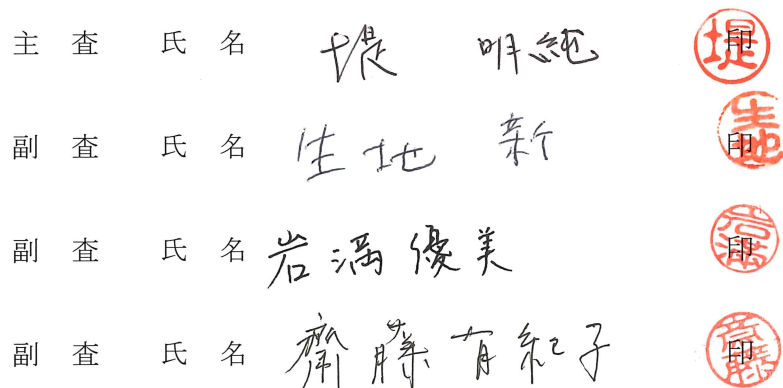 主 査 氏 名 堤 明純 印 堤
副 査 氏 名 生地 新 印 生地
副 査 氏 名 岩満優美 印 岩満
副 査 氏 名 齋藤有紀子 印 齋藤